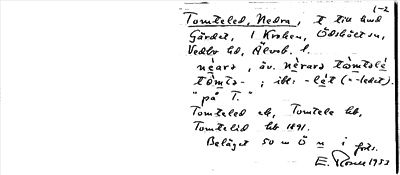 1-2
Tomteled, Nedra, t till hmd
Gärdet, i Kroken, Ödsköts sn,
Vedbo hd, Älvsb. l.
nèara, äv. nèrara tòmtslé
tòmts- ; ibl. -lét (=-ledet).
"på T."
Tomteled ek, Tomtele kb,
Tomtelid kb 1891.
Beläget 50 m Ö n i förts.
E. 1933